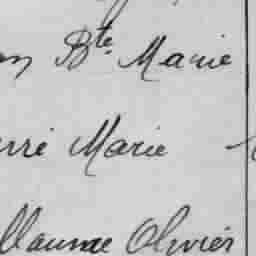 n Bte Marie
erré Marie
llaume Olivier